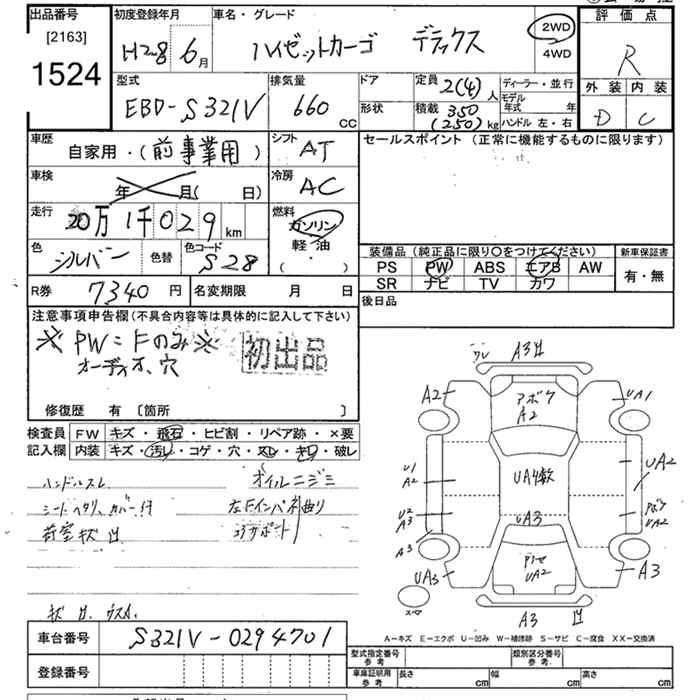 出品番号
[2163]
1524
初度登録年月
H28 6月
車名・グレード
ハイゼットカーゴ デラックス
2WD
4WD
評価点
R
外装 内装
D C
型式
EBD-S321V
排気量
660 CC
ドア
形状
定員 2(4)人
積載 350 (250)kg
ディーラー・並行
モデル年式 年
ハンドル 左・右
車歴
自家用・(前事業用)
シフト
AT
車検
年 月( 日)
冷房
AC
走行
20万1千029km
燃料
ガソリン
軽油
(・)
色
シルバー
色替
色コード
S28
セールスポイント(正常に機能するものに限ります)
装備品(純正品に限り〇をつけてください) 新車保証書
PS PW ABS エアB AW 有・無
SR ナビ TV カワ
後日品
R券 7340円 名変期限 月 日
注意事項申告欄(不具合内容等は具体的に記入して下さい)
※PW=Fのみ※
オーディオ、穴
初出品
修復歴 有 [箇所 ]
検査員 FW キズ・飛石・ヒビ割・リペア跡・×要
記入欄 内装 キズ・汚レ・コゲ・穴・スレ・キレ・破レ
ハンドルスレ オイルニジミ
シートヘタリ、カバー付 左Fインパネ曲り
荷室キズ凹 コアサポート
キズ凹、ウスA.
A3凹
A2
アボケ
A2
UA1
U1
A2
UA4数
UA2
U2
A3
UA3
UA2
A3
UA3
UA2
A3
スペア
A3 凹
A-キズ E-エクボ U-凹み W-補修跡 S-サビ C-腐食 XX-交換済
車台番号 S321V-0294701
登録番号
型式指定番号 参考
類別区分番号 参考
車庫証明用 参考 長さ cm 幅 cm 高さ cm